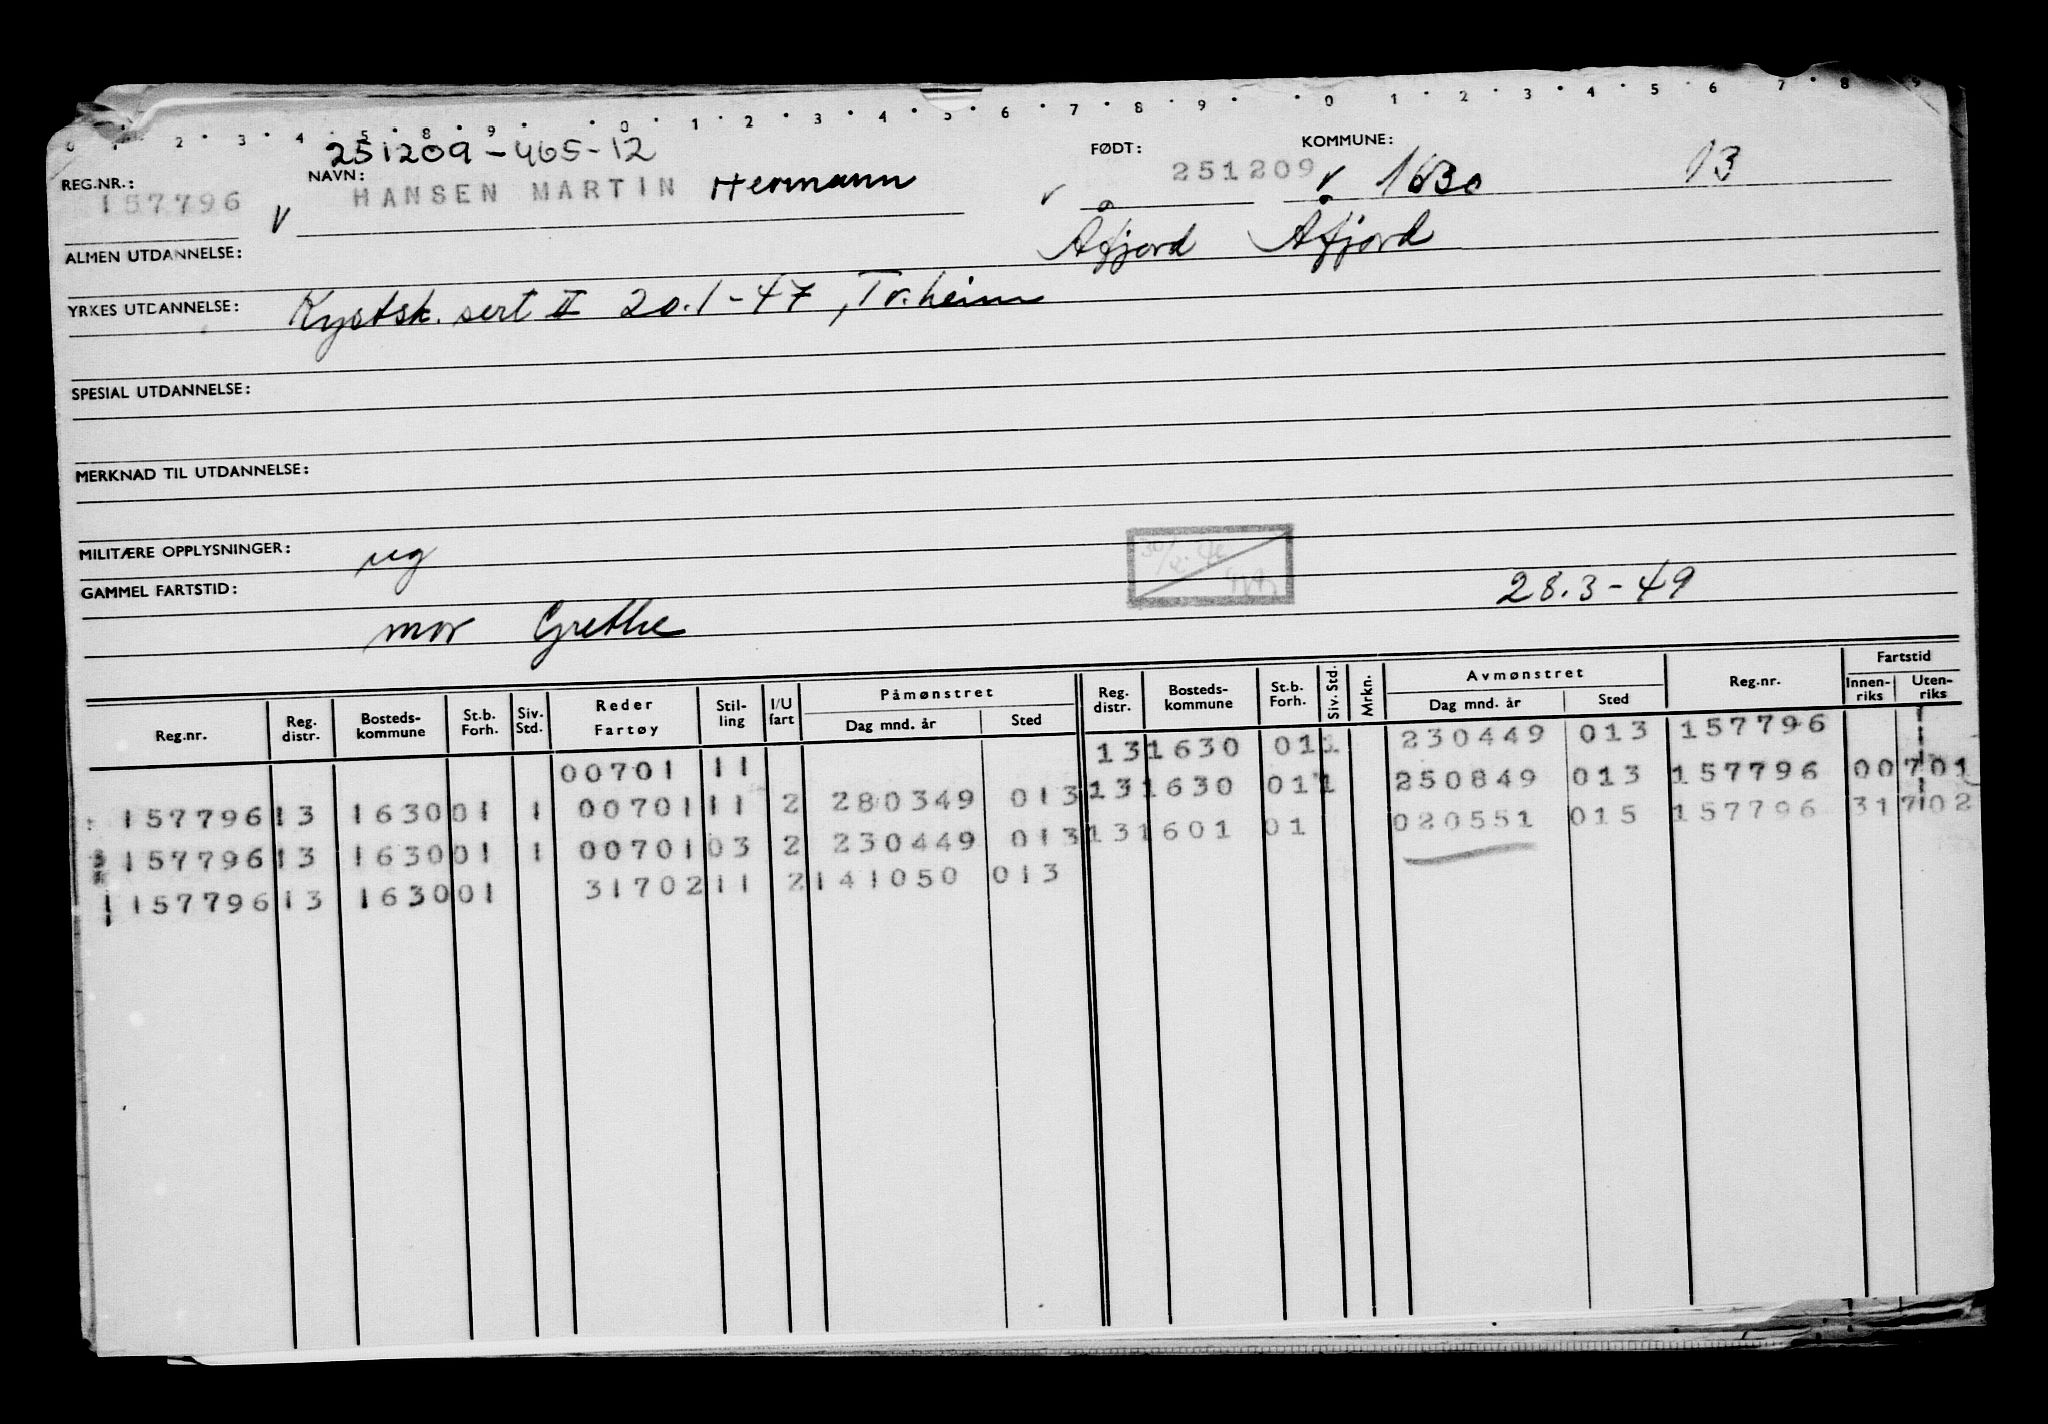 0 1 2 3 4 5 8 9 0 1 2 3 4 5 6 7 8 9 0 1 2 3 4 5 6 7 8 9
251209-465-12
REG.NR.: NAVN: FØDT: KOMMUNE:
157796 V HANSEN MARTIN Hermann v 251209 v 1630 13
ALMEN UTDANNELSE: Åfjord Åfjord
YRKES UTDANNELSE: Kystsk. sert II 20.1-47, Tr.heim
SPESIAL UTDANNELSE:
MERKNAD TIL UTDANNELSE:
MILITÆRE OPPLYSNINGER: ug
GAMMEL FARTSTID: 28.3-49
mor Grethe
Reg.nr. Reg. distr. Bosteds-kommune St.b. Forh. Siv. Std. Reder Fartøy Stil-ling I/U fart Påmønstret Dag mnd. år Sted Reg. distr. Bosteds-kommune St.b. Forh. Siv. Std. Mrkn. Avmønstret Dag mnd. år Sted Reg.nr. Fartstid Innen-riks Uten-riks
00701 11 13 1630 01 1 230449 013 157796
157796 13 1630 01 1 00701 11 2 280349 013 13 1630 01 1 250849 013 157796 00701
157796 13 1630 01 1 00701 03 2 230449 013 13 1601 01 020551 015 157796 31702
157796 13 1630 01 31702 11 2 141050 013